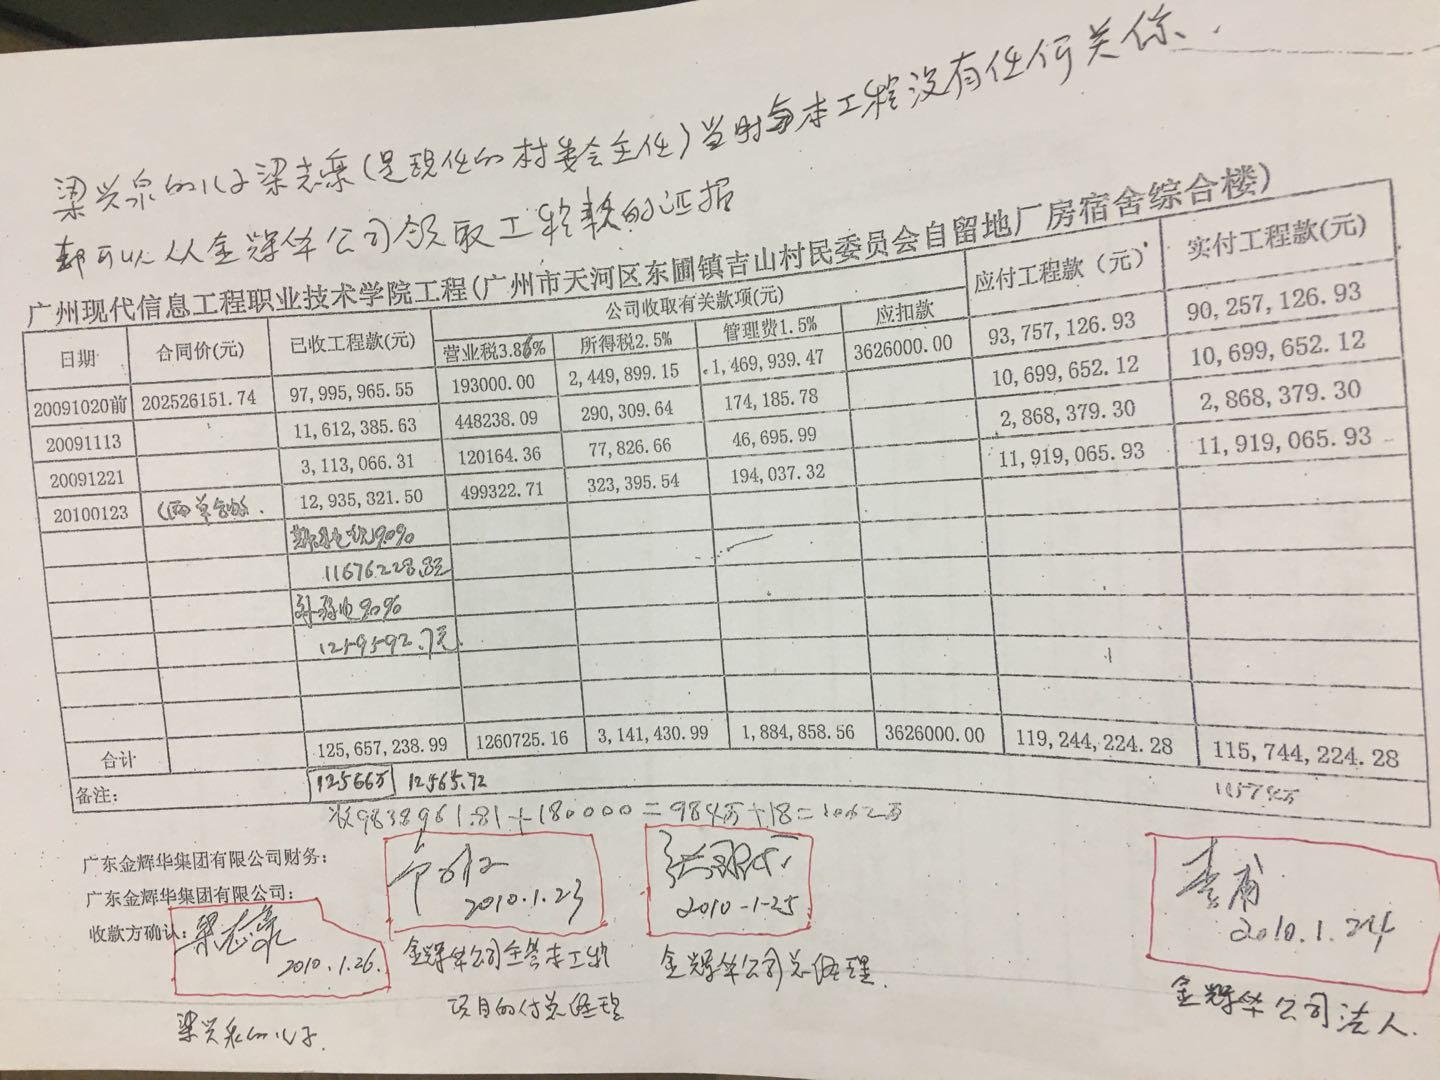 梁兴泉的儿子梁志豪(是现任的村委会主任)当时与本工程没有任何关系.
都可以从金辉华公司领取工程款的证据
广州现代信息工程职业技术学院工程(广州市天河区东圃镇吉山村民委员会自留地厂房宿舍综合楼)
日期 合同价(元) 已收工程款(元) 公司收取有关款项(元) 应付工程款(元) 实付工程款(元)
营业税3.86% 所得税2.5% 管理费1.5% 应扣款
20091020前 202526151.74 97,995,965.55 193000.00 2,449,899.15 1,469,939.47 3626000.00 93,757,126.93 90,257,126.93
20091113 11,612,385.63 448238.09 290,309.64 174,185.78 10,699,652.12 10,699,652.12
20091221 3,113,066.31 120164.36 77,826.66 46,695.99 2,868,379.30 2,868,379.30
20100123 12,935,821.50 499322.71 323,395.54 194,037.32 11,919,065.93 11,919,065.93
90%
11676228.8
90%
1259592.7元
合计 125,657,238.99 1260725.16 3,141,430.99 1,884,858.56 3626000.00 119,244,224.28 115,744,224.28
备注: 12566万 12565.72 11574万
9838961.81+180000=984万+18=1002万
广东金辉华集团有限公司财务:
2010.1.23 2010-1-25 2010.1.24
广东金辉华集团有限公司:
收款方确认: 梁志豪
2010.1.26.
金辉华公司主管本工程
项目的付总经理
金辉华公司总经理.
金辉华公司法人.
梁兴泉的儿子.